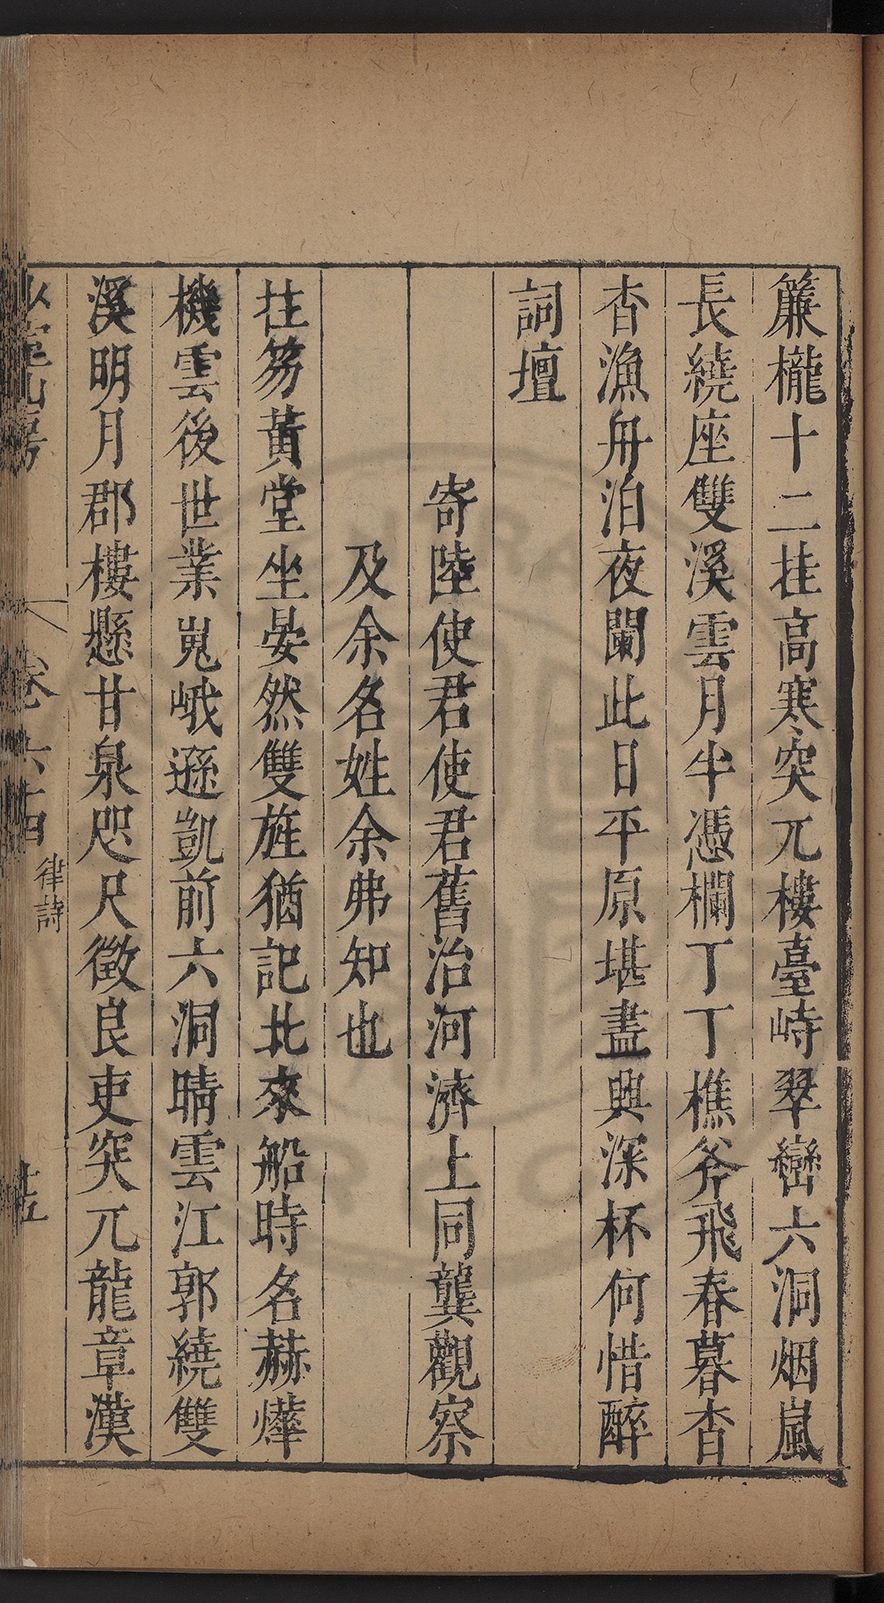 簾櫳十二挂高寒突兀樓臺峙翠巒六洞烟嵐
長繞座雙溪雲月半憑欄丁丁樵斧飛春暮杳
杳漁舟泊夜闌此日平原堪盡興深杯何惜醉
詞壇
寄陸使君使君舊治河濟上同龔觀察
及余名姓余弗知也
拄笏黃堂坐晏然雙旌猶記北來船時名赫燁
機雲後世業嵬峨遜凱前六洞晴雲江郭繞雙
溪明月郡樓懸甘泉咫尺徵良吏突兀龍章漢
卷六十四 律詩